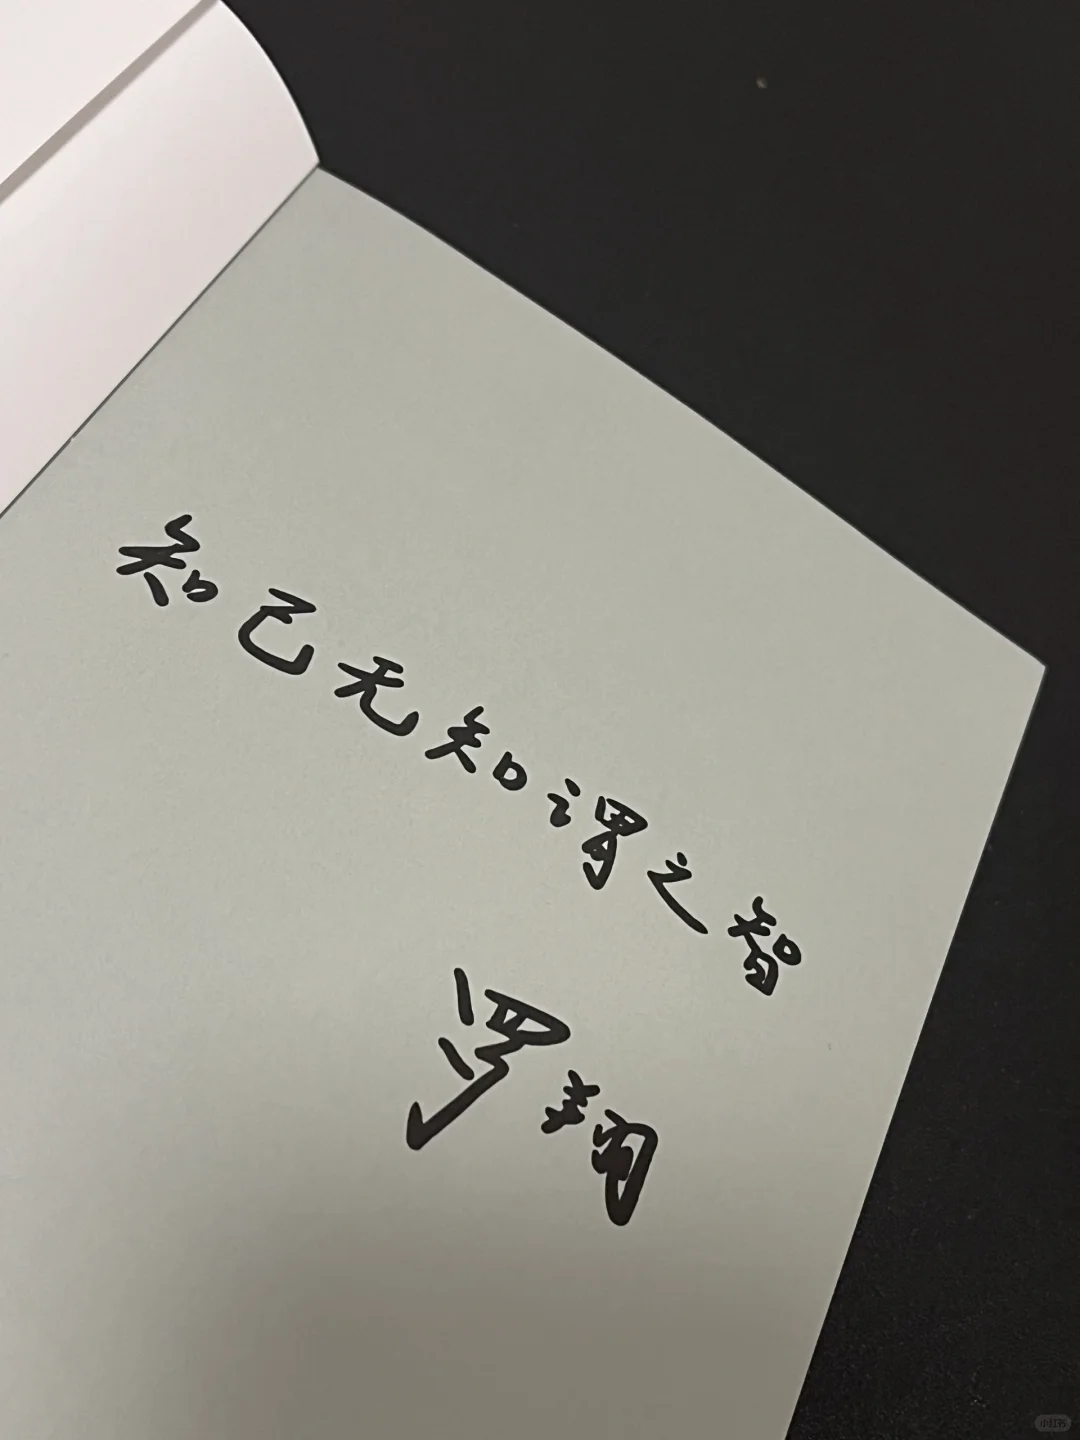 知己无知谓之智
罗翔
小红书